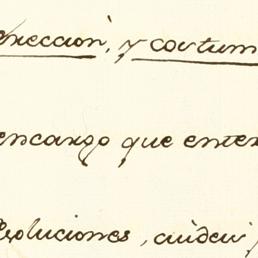 ereccion, y costum
encargo que enter
Resoluciones, cuiden